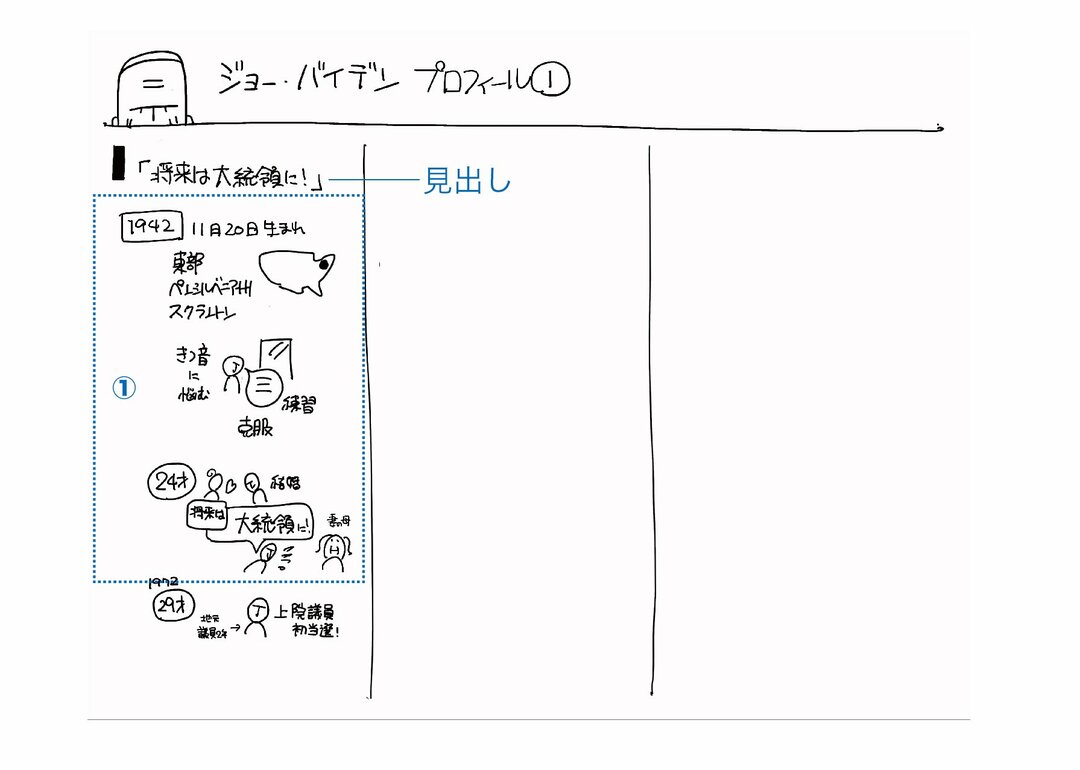 ジョー・バイデン プロフィール①
「将来は大統領に!」
見出し
1942 11月20日生まれ
東部
ペンシルベニア州
スクラントン
きつ音
に
悩む
練習
克服
①
24才
結婚
将来は
大統領に!
妻の母
H
1972
29才
地元
議員2年→
J
上院議員
初当選!